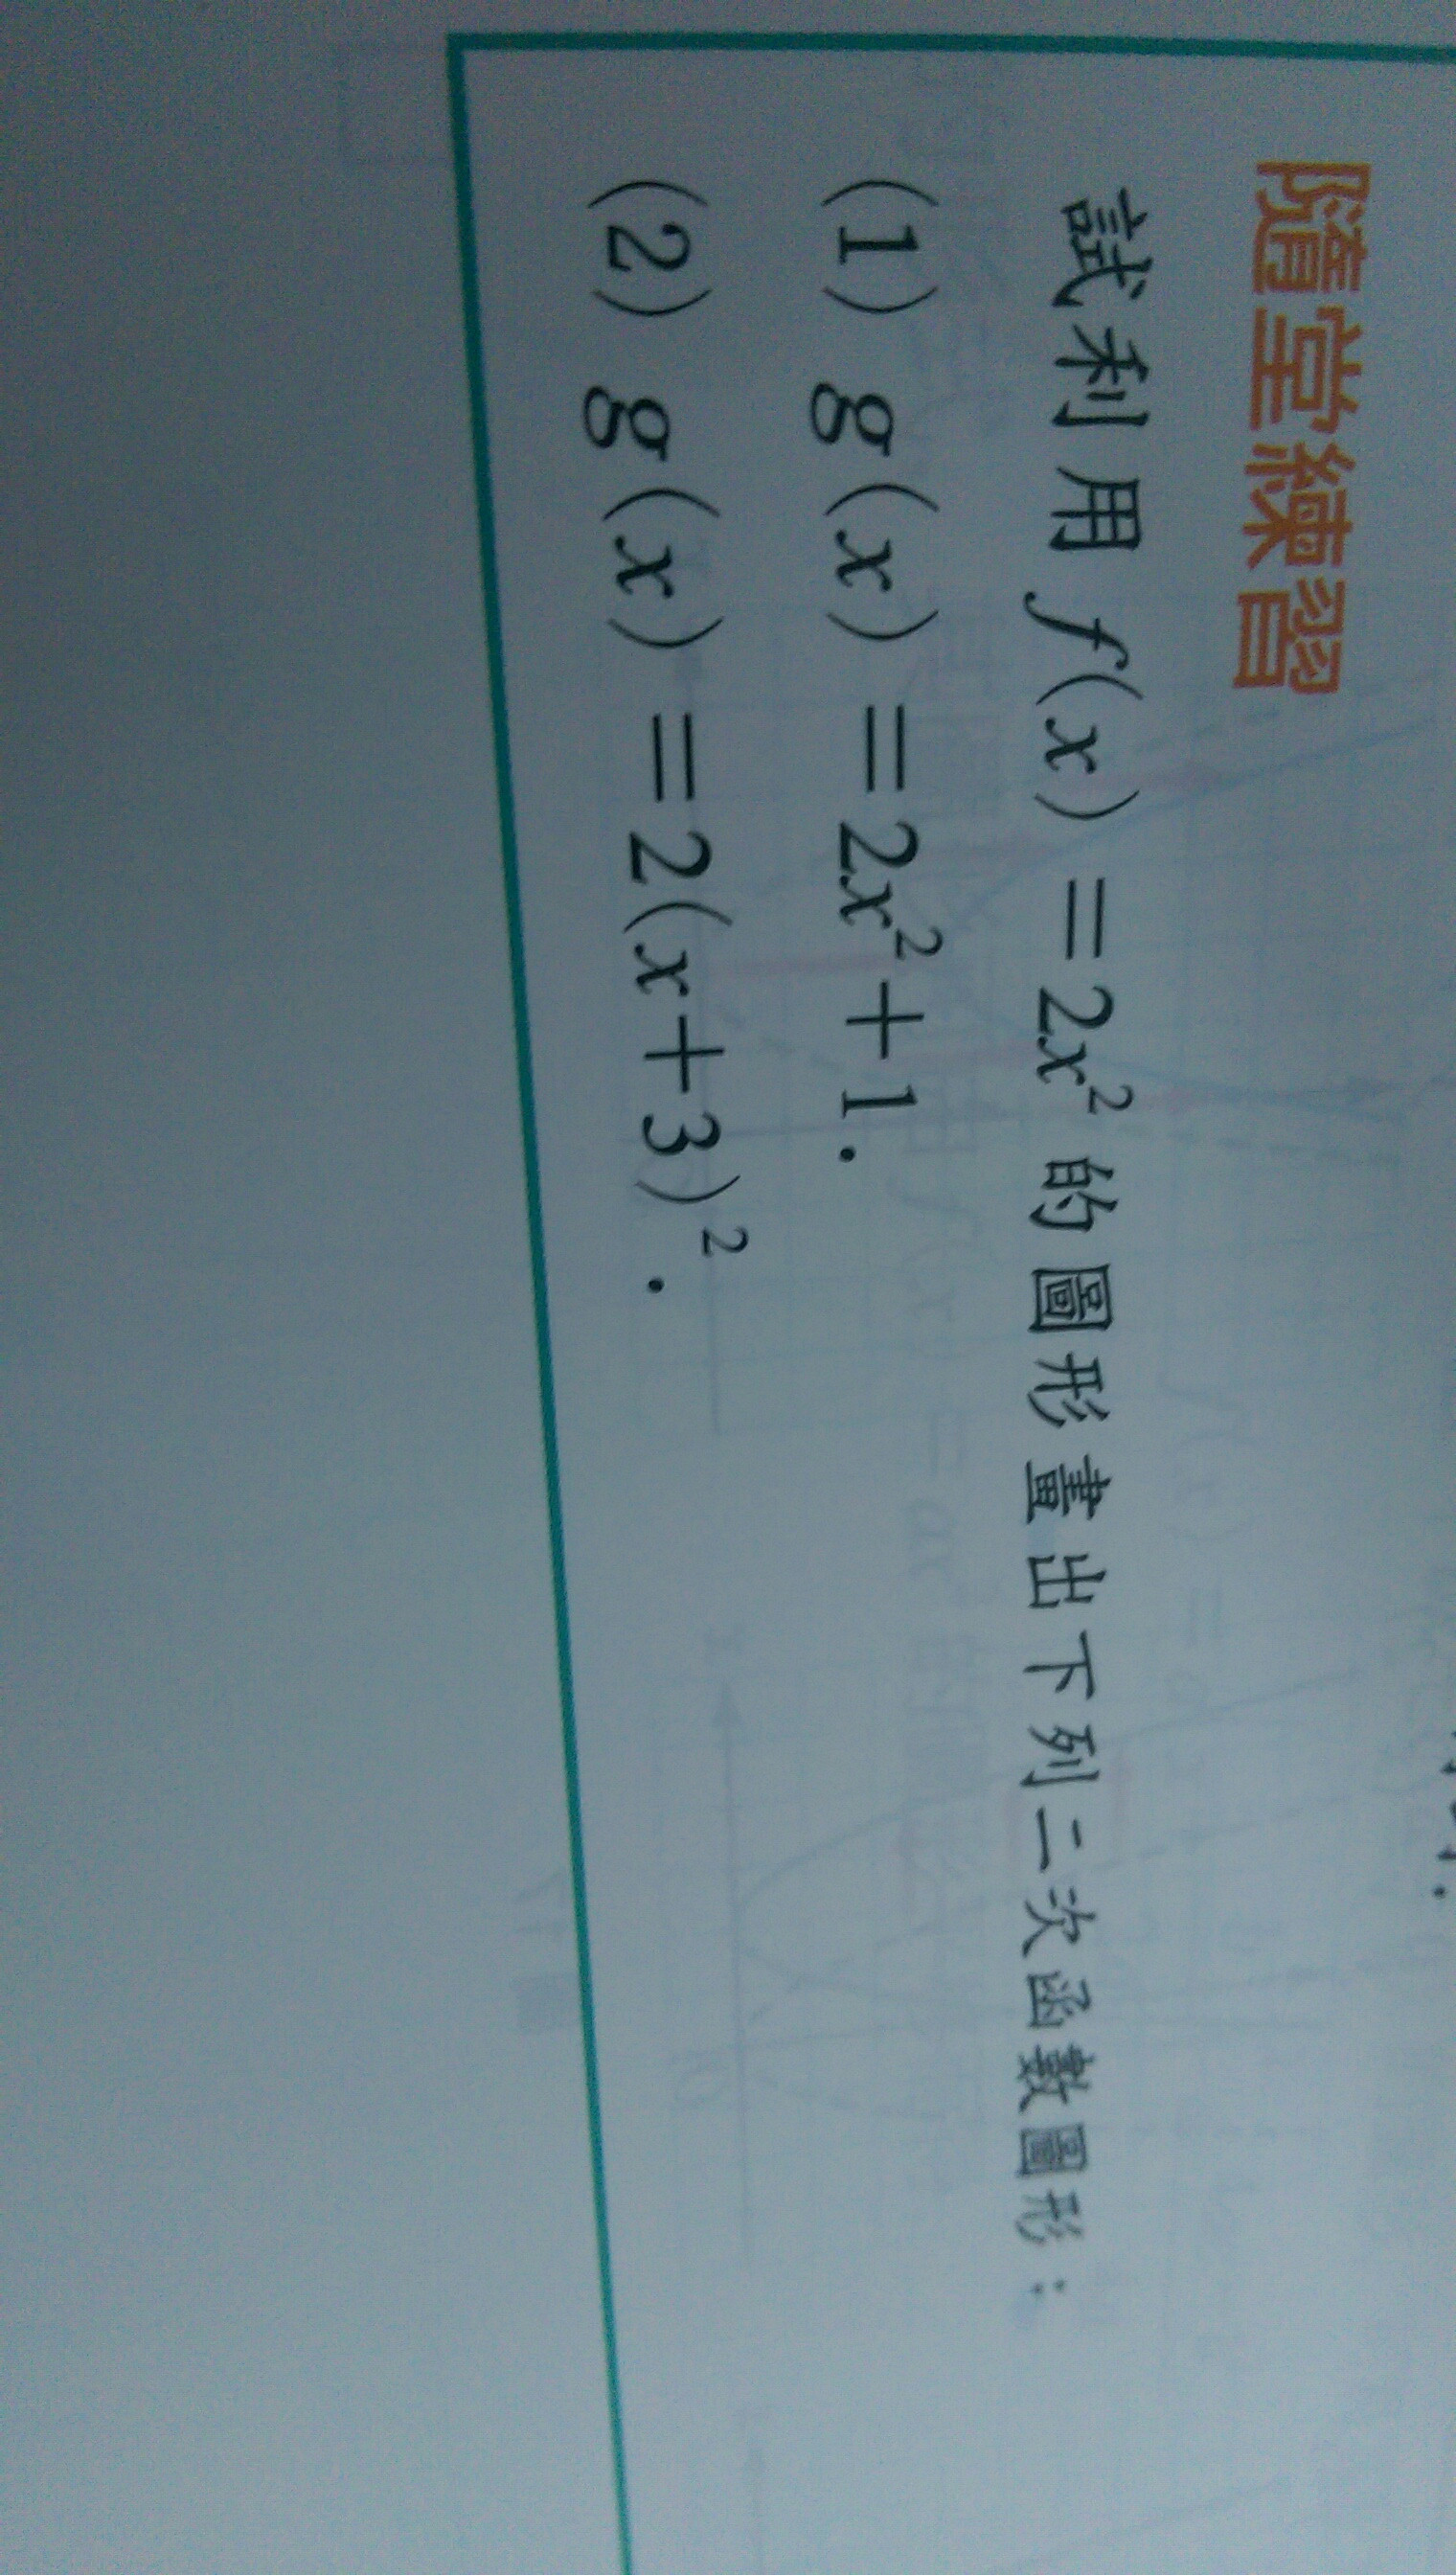 隨堂練習
試利用 f(x)=2x² 的圖形畫出下列二次函數圖形：
(1) g(x)=2x²+1.
(2) g(x)=2(x+3)².